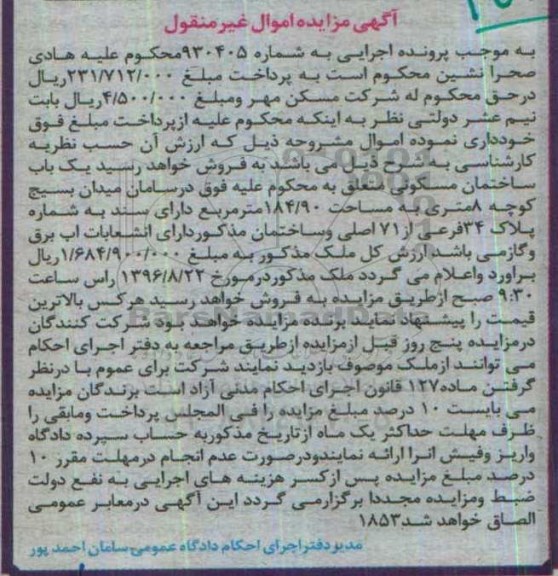 آگهی مزایده اموال غیر منقول
به موجب پرونده اجرایی به شماره ۹۳۰۴۰۵محکوم علیه هادی
صحرا نشین محکوم است به پرداخت مبلغ ۲۳۱/۷۱۲/۰۰۰ریال
درحق محکوم له شرکت مسکن مهر ومبلغ ۴/۵۰۰/۰۰۰ریال بابت
نیم عشر دولتی نظر به اینکه محکوم علیه ازپرداخت مبلغ فوق
خودداری نموده اموال مشروحه ذیل که ارزش آن حسب نظریه
کارشناسی به شرح ذیل می باشد به فروش خواهد رسید یک باب
ساختمان مسکونی متعلق به محکوم علیه فوق درسامان میدان بسیج
کوچه ۸متری به مساحت ۱۸۴/۹۰مترمربع دارای سند به شماره
پلاک ۳۴فرعی از۷۱ اصلی وساختمان مذکوردارای انشعابات اب برق
وگازمی باشد ارزش کل ملک مذکور به مبلغ ۱/۶۸۴/۹۰۰/۰۰۰ریال
براورد واعلام می گردد ملک مذکوردرمورخ ۱۳۹۶/۸/۲۲ راس ساعت
۹:۳۰ صبح ازطریق مزایده به فروش خواهد رسید هرکس بالاترین
قیمت را پیشنهاد نماید برنده مزایده خواهد بود شرکت کنندگان
درمزایده پنج روز قبل ازمزایده ازطریق مراجعه به دفتر اجرای احکام
می توانند ازملک موصوف بازدید نمایند شرکت برای عموم با درنظر
گرفتن ماده۱۲۷ قانون اجرای احکام مدنی آزاد است برندگان مزایده
می بایست ۱۰ درصد مبلغ مزایده را فی المجلس پرداخت ومابقی را
ظرف مهلت حداکثر یک ماه ازتاریخ مذکوربه حساب سپرده دادگاه
واریز وفیش انرا ارائه نمایندودرصورت عدم انجام درمهلت مقرر ۱۰
درصد مبلغ مزایده پس ازکسر هزینه های اجرایی به نفع دولت
ضبط ومزایده مجددا برگزارمی گردد این آگهی درمعابر عمومی
الصاق خواهد شد۱۸۵۳
مدیردفتراجرای احکام دادگاه عمومی سامان احمد پور